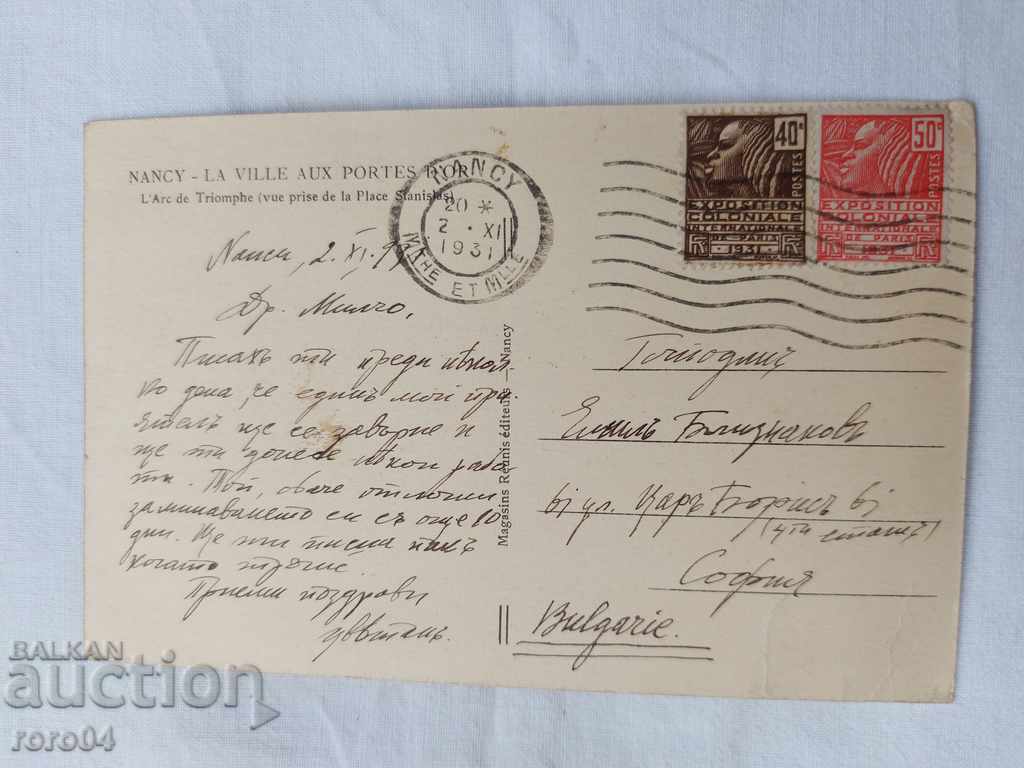 NANCY - LA VILLE AUX PORTES D'OR
L'Arc de Triomphe (vue prise de la Place Stanislas)
NANCY
20 *
2 · XI
1931
MTHE ET MLLE
40c
POSTES
EXPOSITION
COLONIALE
INTERNATIONALE
DE PARIS
1931
50c
POSTES
EXPOSITION
COLONIALE
INTERNATIONALE
DE PARIS
1931
Nancy, 2. XI.
Др. Милчо,
Писахъ ти преди някол-
ко дена, че единъ мой при-
ятель ще се завърне и
ще ти донесе някои рабо-
ти. Той, обаче отложи
заминаването си съ още 10
дни. Ще ти пиша пакъ
когато тръгне
Приеми поздрави
Цвѣтанъ.
Magasins Réunis éditeurs - Nancy
Господинъ
Емилъ Близнаковъ
61 ул. Царъ Борисъ 61
(4ти етажъ)
София
Bulgarie.
BALKAN
auction
roro04